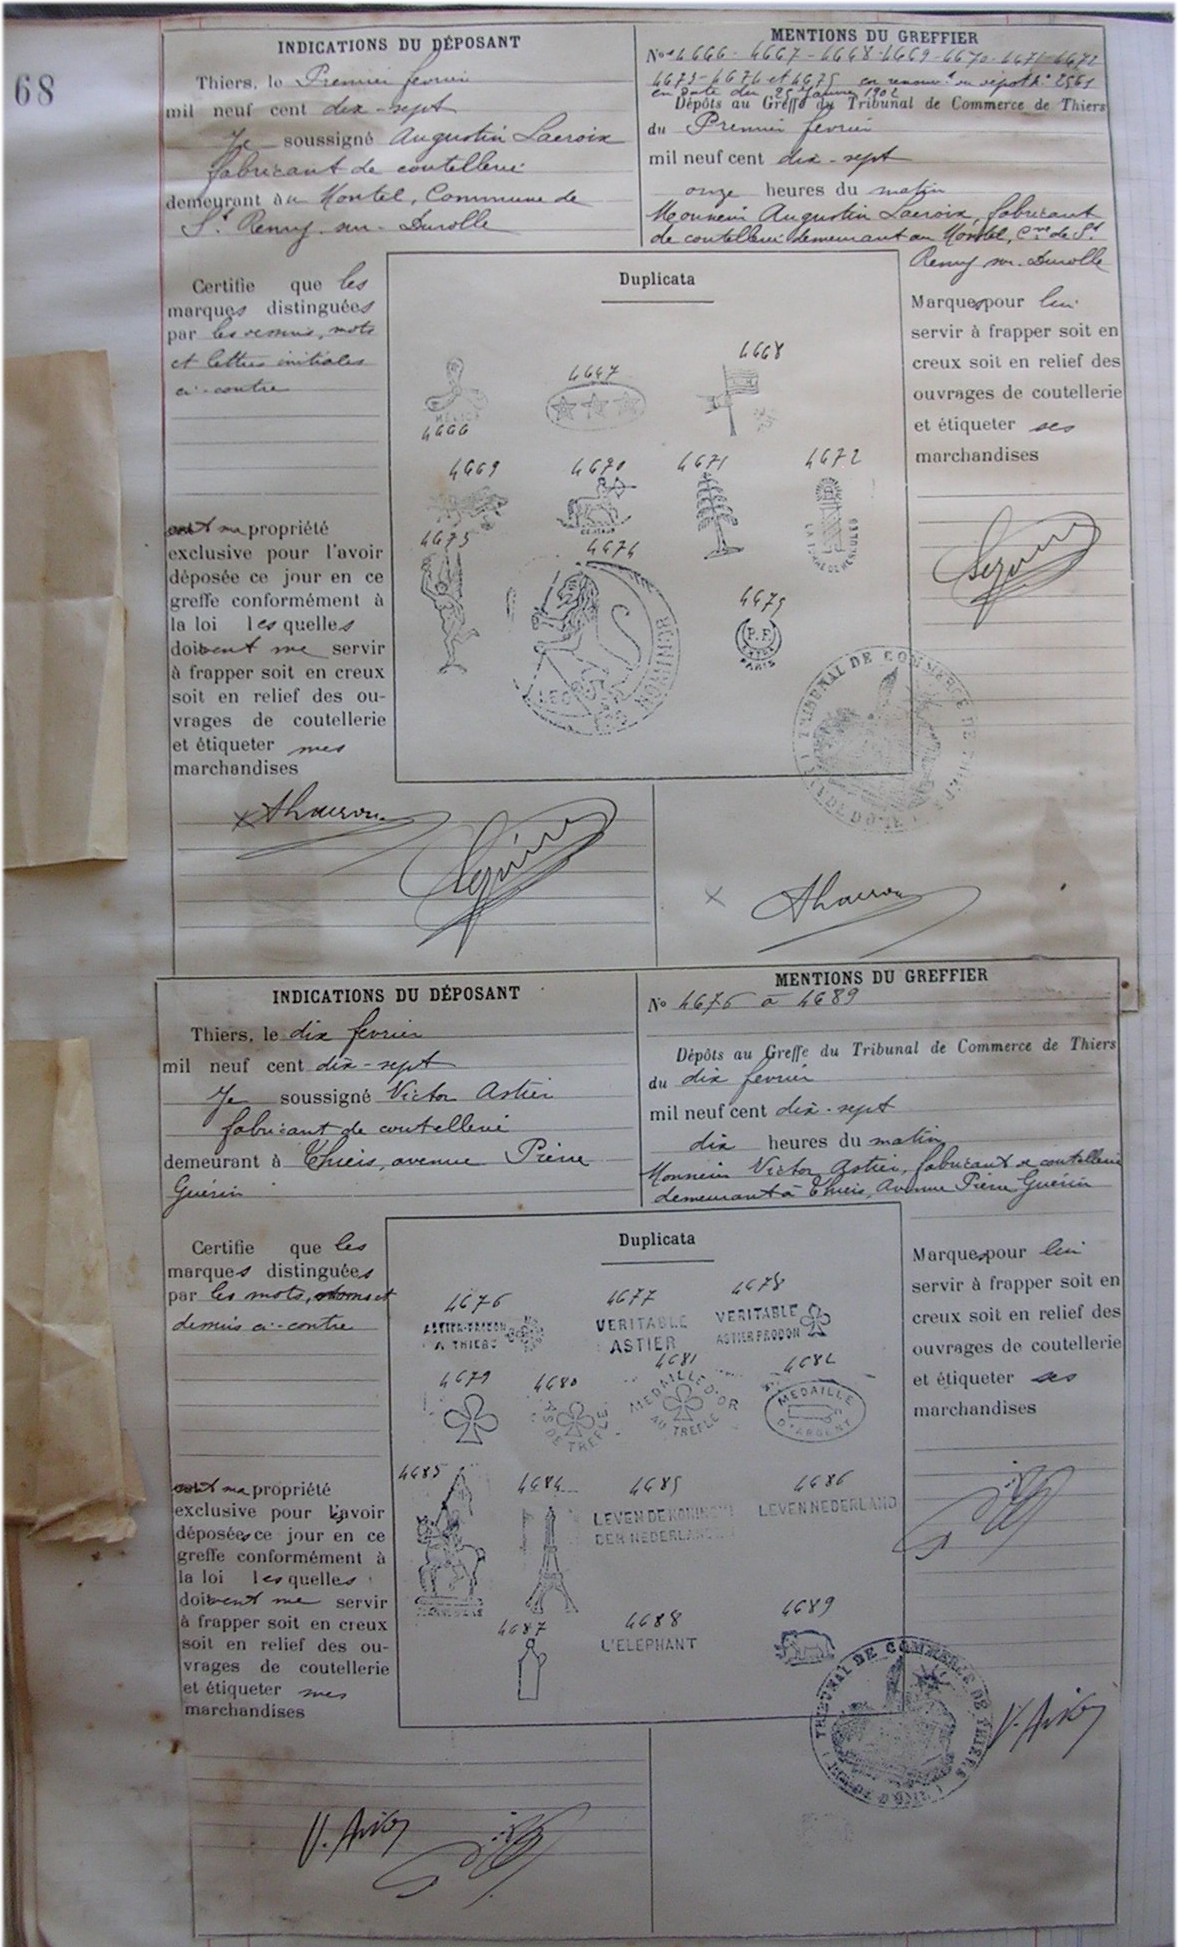 68
INDICATIONS DU DÉPOSANT
Thiers, le Premier fevrier
mil neuf cent dix-sept
Je soussigné Augustin Lacroix
fabricant de coutellerie
demeurant au Montel, Commune de
St Remy-sur-Durolle
MENTIONS DU GREFFIER
Nos 4666 - 4667 - 4668 - 4669 - 4670 - 4671 - 4672
4673 - 4674 et 4675 en renouvt du dépôt No 2561
en date du 25 Janvier 1902
Dépôts au Greffe du Tribunal de Commerce de Thiers
du Premier fevrier
mil neuf cent dix-sept
onze heures du matin
Monsieur Augustin Lacroix, fabricant
de coutellerie demeurant au Montel, Cne de St
Remy sur Durolle
Certifie que les
marques distinguées
par les dessins, mots
et lettres initiales
ci-contre
sont ma propriété
exclusive pour l'avoir
déposée ce jour en ce
greffe conformément à
la loi lesquelles
doivent me servir
à frapper soit en creux
soit en relief des ou-
vrages de coutellerie
et étiqueter mes
marchandises
Duplicata
4668
4667
HELICE
4666
4669 4670 4671 4672
CENTAUR
4673 4674
4675
P.F.
PARIS
TRIBUNAL DE COMMERCE DE THIERS
Marques pour lui
servir à frapper soit en
creux soit en relief des
ouvrages de coutellerie
et étiqueter ses
marchandises
INDICATIONS DU DÉPOSANT
Thiers, le dix fevrier
mil neuf cent dix-sept
Je soussigné Victor Astier
fabricant de coutellerie
demeurant à Thiers, avenue Pierre
Guérin
MENTIONS DU GREFFIER
No 4676 à 4689
Dépôts au Greffe du Tribunal de Commerce de Thiers
du dix fevrier
mil neuf cent dix-sept
dix heures du matin
Monsieur Victor Astier, fabricant de coutellerie
demeurant à Thiers, Avenue Pierre Guérin
Certifie que les
marques distinguées
par les mots, et
dessins ci-contre
sont ma propriété
exclusive pour l'avoir
déposées ce jour en ce
greffe conformément à
la loi lesquelles
doivent me servir
à frapper soit en creux
soit en relief des ou-
vrages de coutellerie
et étiqueter mes
marchandises
Duplicata
4676 4677 4678
ASTIER-PRODON
A THIERS
VERITABLE
ASTIER
VERITABLE
ASTIER PRODON
4679 4680 4681 4682
AS DE TREFLE
MEDAILLE D'OR
AU TREFLE
MEDAILLE
D'ARGENT
4683 4684 4685 4686
LEVEN DE KONINGIN
DER NEDERLANDEN
LEVEN NEDERLAND
4687 4688 4689
L'ELEPHANT
TRIBUNAL DE COMMERCE DE THIERS
Marques pour lui
servir à frapper soit en
creux soit en relief des
ouvrages de coutellerie
et étiqueter ses
marchandises
V. Astier
V. Astier